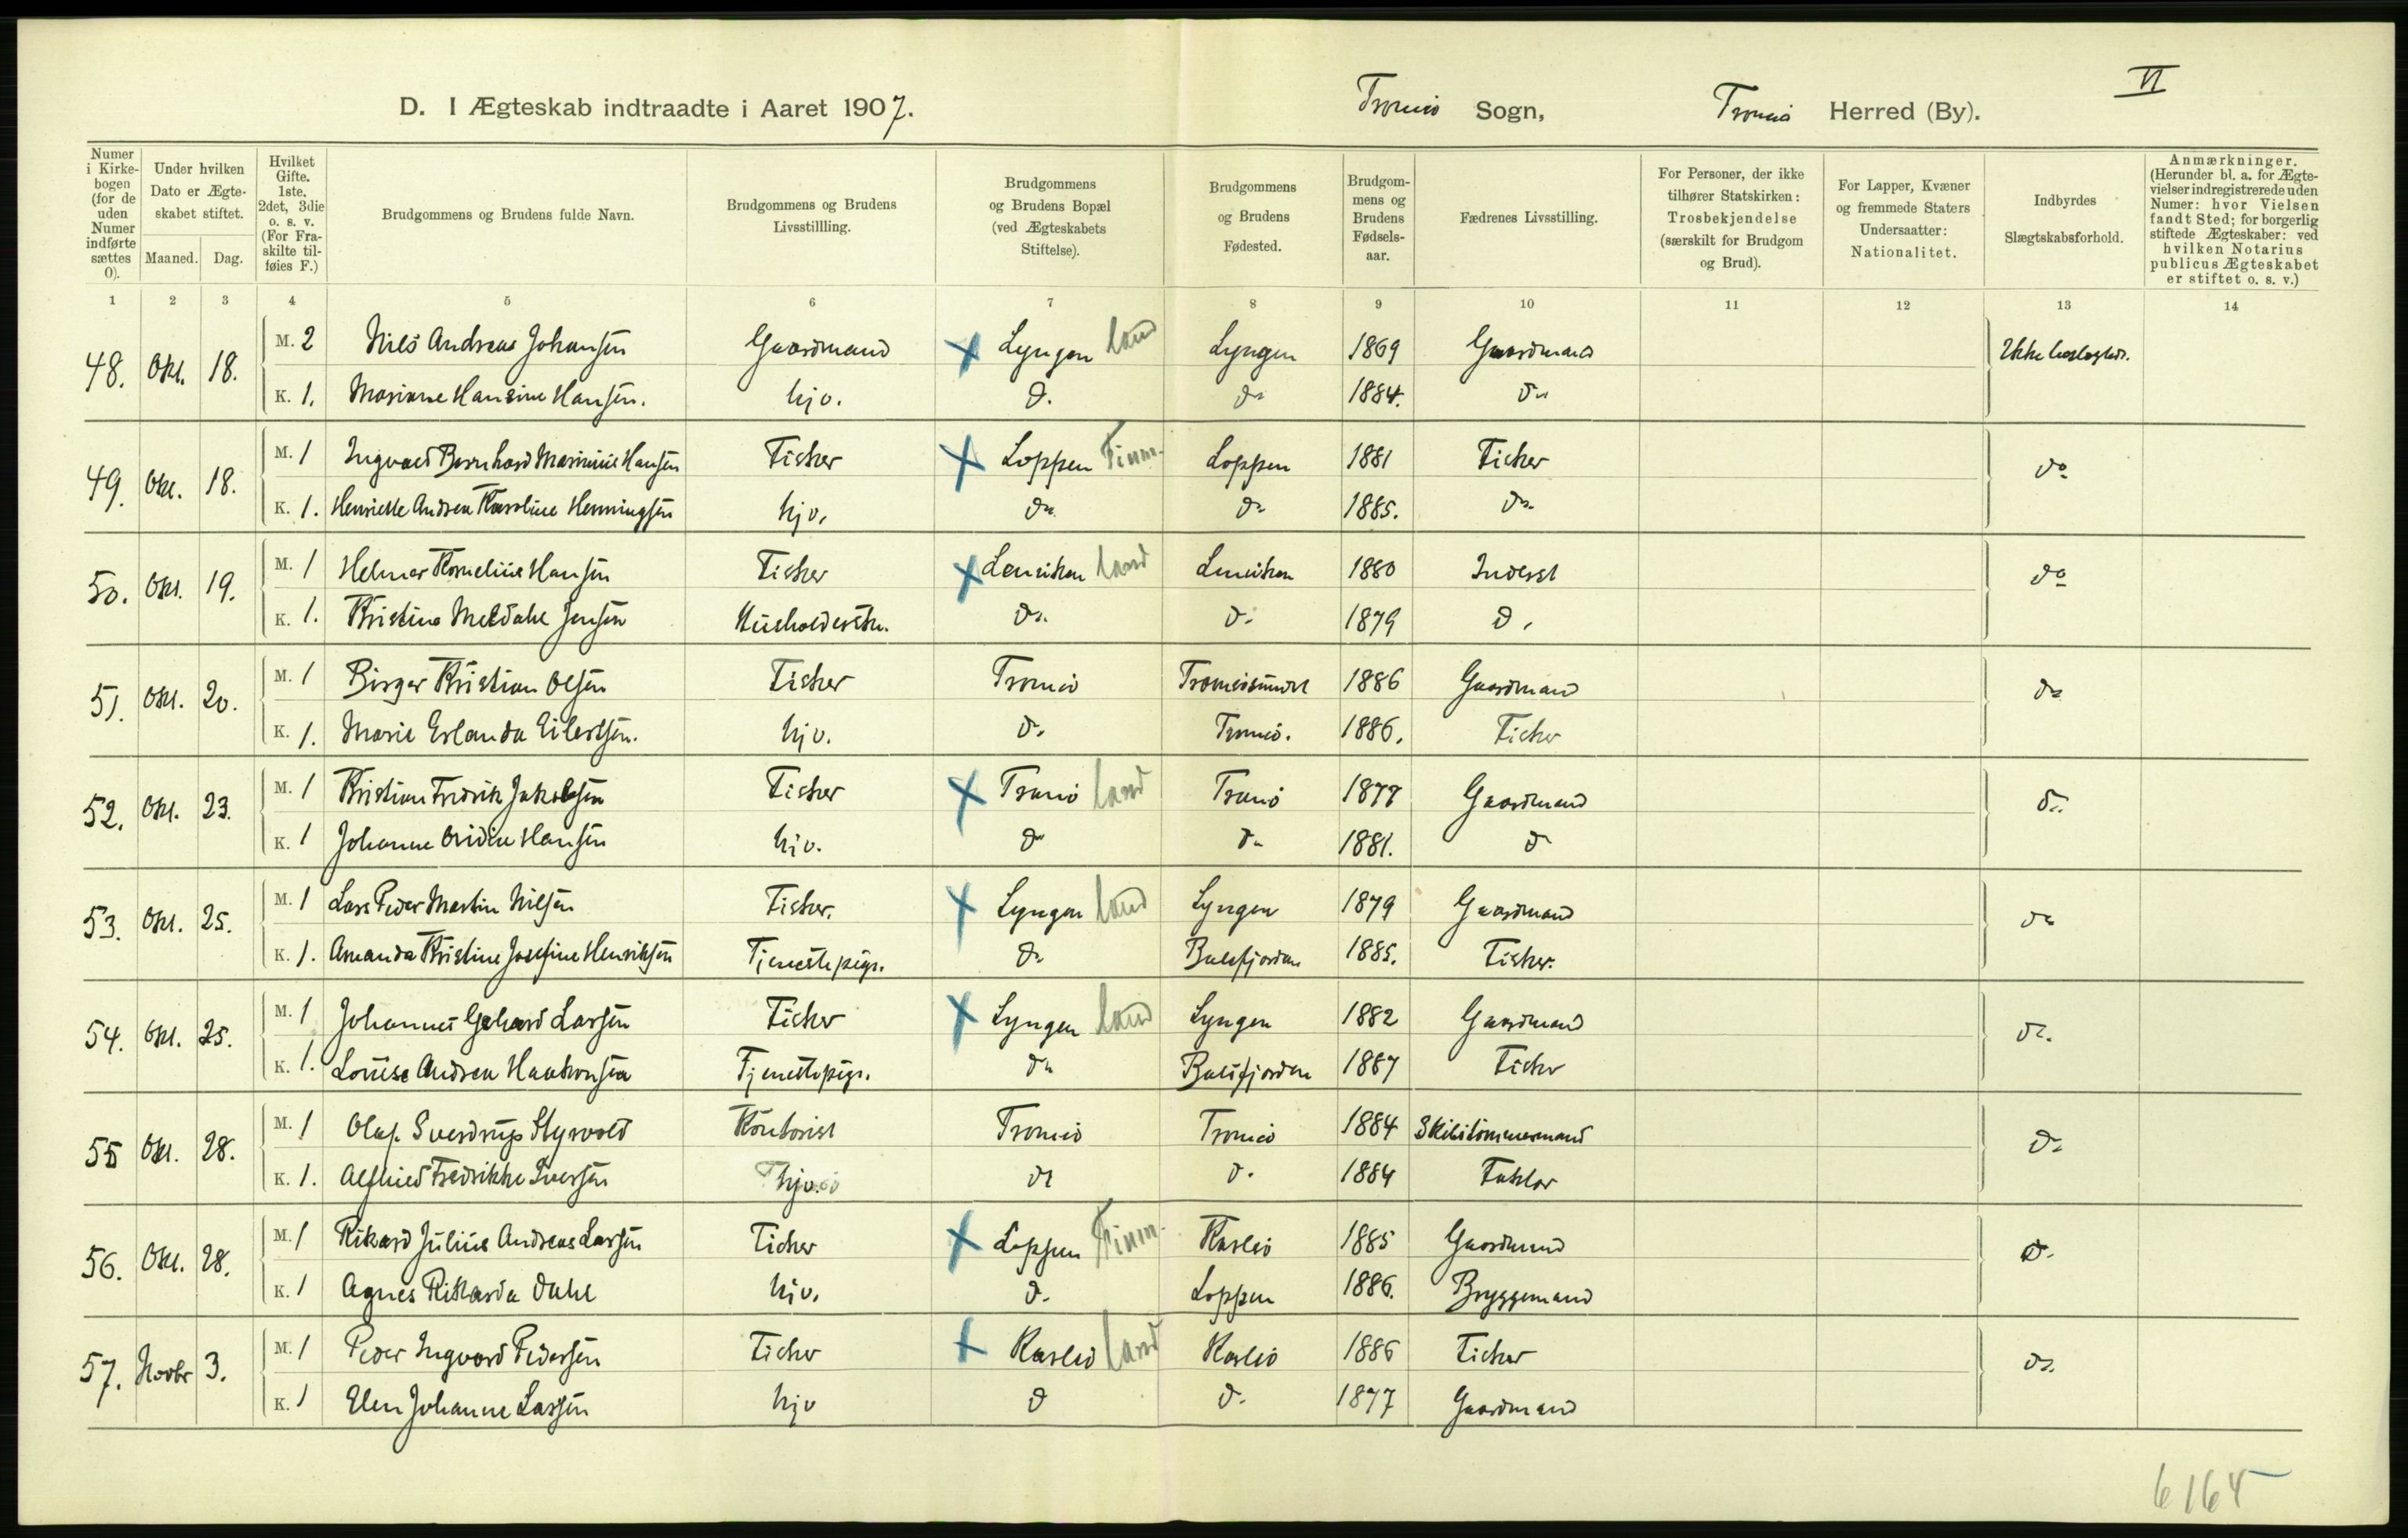 VI
D. I Ægteskab indtraadte i Aaret 1907. Tromsö Sogn, Tromsö Herred (By).
Numer i Kirkebogen (for de uden Numer indførte sættes 0).
Under hvilken Dato er Ægteskabet stiftet.
Maaned. Dag.
Hvilket Gifte. 1ste, 2det, 3die o. s. v. (For Fraskilte tilføies F.)
Brudgommens og Brudens fulde Navn.
Brudgommens og Brudens Livsstillling.
Brudgommens og Brudens Bopæl (ved Ægteskabets Stiftelse).
Brudgommens og Brudens Fødested.
Brudgommens og Brudens Fødselsaar.
Fædrenes Livsstilling.
For Personer, der ikke tilhører Statskirken: Trosbekjendelse (særskilt for Brudgom og Brud).
For Lapper, Kvæner og fremmede Staters Undersaatter: Nationalitet.
Indbyrdes Slægtskabsforhold.
Anmærkninger. (Herunder bl. a. for Ægtevielser indregistrerede uden Numer: hvor Vielsen fandt Sted; for borgerlig stiftede Ægteskaber: ved hvilken Notarius publicus Ægteskabet er stiftet o. s. v.)
1 2 3 4 5 6 7 8 9 10 11 12 13 14
48. Okt. 18. M. 2 Nils Andreas Johansen Gaardmand X Lyngen land Lyngen 1869 Gaardmand Ikke beslægtede.
K. 1. Marianne Hansine Hansen. hjv. do do 1884. do
49. Okt. 18. M. 1 Ingvald Bernhard Marinius Hansen Fisker X Loppen Finm. Loppen 1881 Fisker do
K. 1. Henriette Andrea Karoline Henningsen hjv. do do 1885. do
50. Okt. 19. M. 1 Helmer Kornelius Hansen Fisker X Lenviken land Lenviken 1880 Inderst do
K. 1. Kristine Meldahl Jensen Husholderske. do do 1879 do
51. Okt. 20. M. 1 Birger Kristian Olsen Fisker Tromsö Tromsösundet 1886 Gaardmand do
K. 1. Marie Erlanda Eilertsen. hjv. do Tromsö. 1886. Fisker
52. Okt. 23. M. 1 Kristian Fredrik Jakobsen Fisker X Tranö land Tranö 1877 Gaardmand do
K. 1 Johanne Ovidie Hansen hjv. do do 1881. do
53. Okt. 25. M. 1 Lars Peder Martin Nilsen Fisker. X Lyngen land Lyngen 1879 Gaardmand do
K. 1. Amanda Kristine Josefine Henriksen Tjenestepige. do Balsfjorden 1885. Fisker.
54. Okt. 25. M. 1 Johannes Gehard Larsen Fisker X Lyngen land Lyngen 1882 Gaardmand do
K. 1. Louise Andrea Haakonsen Tjenestepige. do Balsfjorden 1887 Fisker
55 Okt. 28. M. 1 Olaf Sverdrup Styrvold Kontorist Tromsö Tromsö 1884 Skibstömmermand do
K. 1. Alfhild Fredrikke Iversen hjv. do do 1884 Faktor
56. Okt. 28. M. 1 Rikard Julius Andreas Larsen Fisker X Loppen Finm. Karlsö 1885 Gaardmand do
K. 1 Agnes Rikarda Dahl hjv. do Loppen 1886. Bryggemand
57. Novbr 3. M. 1 Peder Ingvard Pedersen Fisker X Karlsö land Karlsö 1886 Fisker do
K. 1 Elen Johanne Larsen hjv do do 1877 Gaardmand
6164